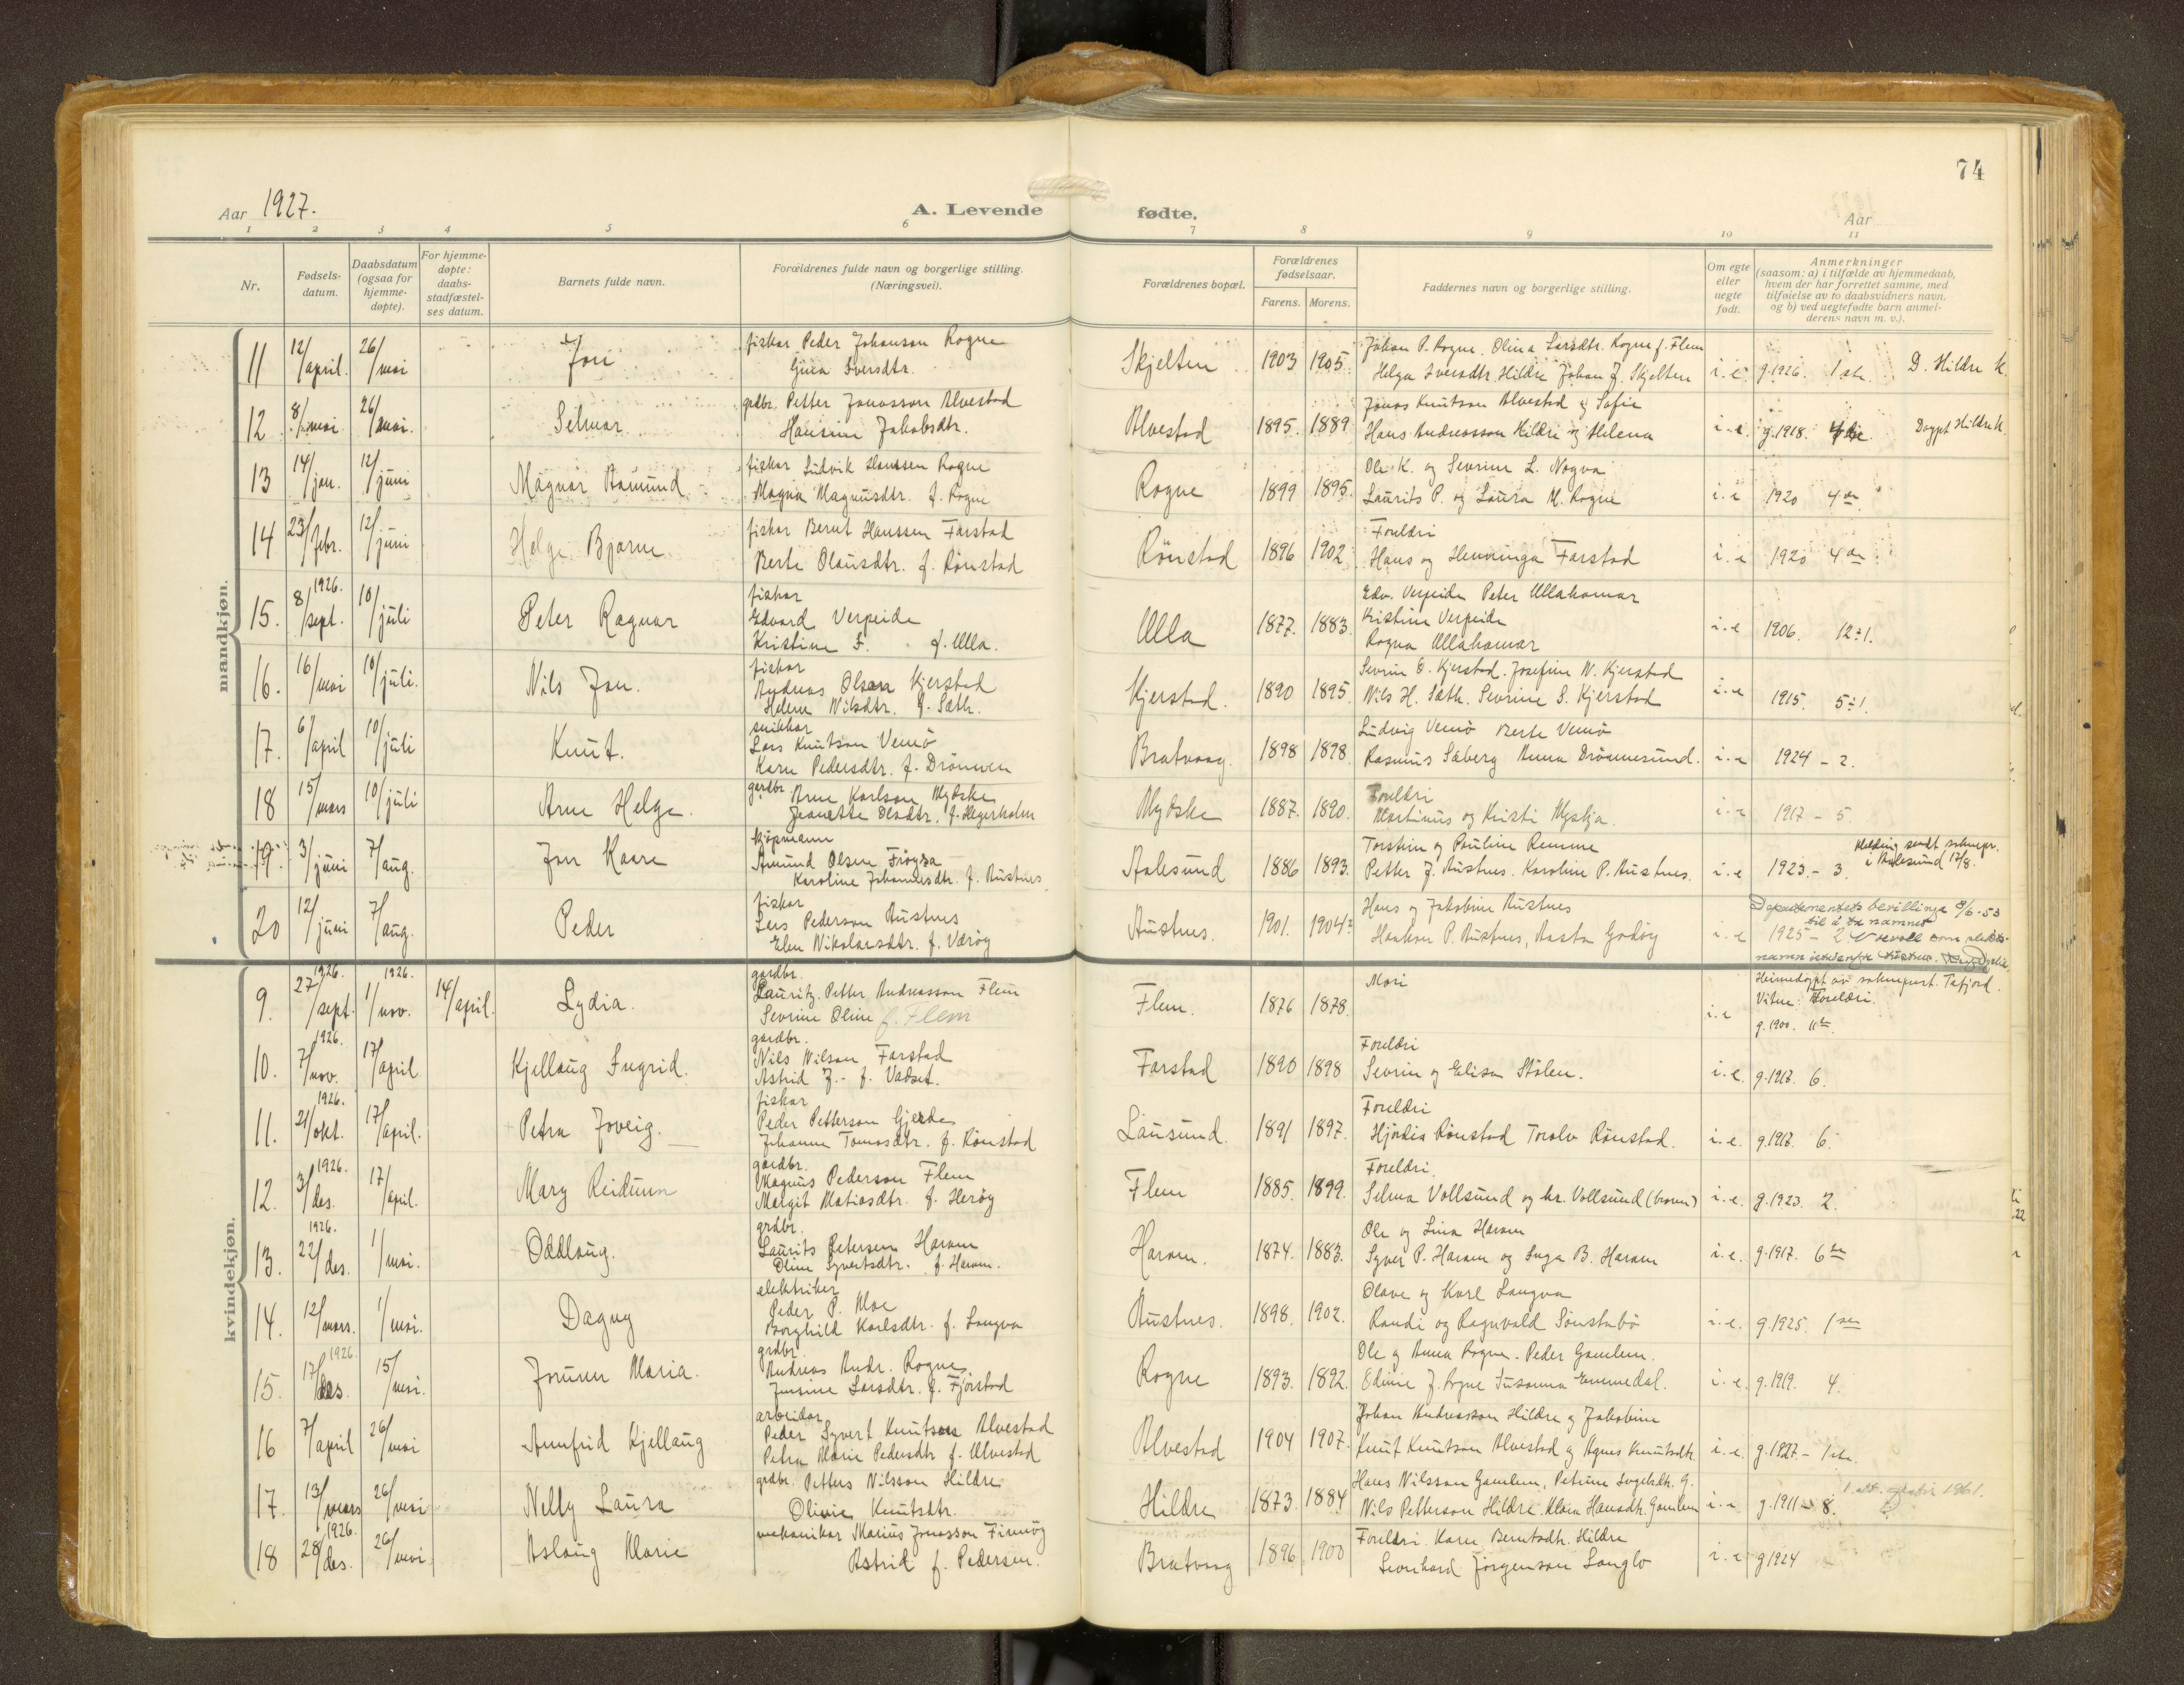 74
Aar 1927.
A. Levende fødte.
Aar
1 2 3 4 5 6 7 8 9 10 11
Nr.
Fødsels-
datum.
Daabsdatum
(ogsaa for
hjemme-
døpte).
For hjemme-
døpte:
daabs-
stadfæstel-
ses datum.
Barnets fulde navn.
Forældrenes fulde navn og borgerlige stilling.
(Næringsvei).
Forældrenes bopæl.
Forældrenes
fødselsaar.
Farens. Morens.
Faddernes navn og borgerlige stilling.
Om egte
eller
uegte
født.
Anmerkninger
(saasom: a) i tilfælde av hjemmedaab,
hvem der har forrettet samme, med
tilføielse av to daabsvidners navn,
og b) ved uegtefødte barn anmel-
derens navn m. v.).
mandkjøn.
11 12/april. 26/mai Jon
fiskar Peder Johanson Rogne
Gina Iversdtr.
Skjelten 1903 1905
Johan P. Rogne. Olina Larsdtr. Rogne f. Flem
Helga Iversdtr. Hildre Johan J. Skjelten
i.e. g.1926. 1ste. D. Hildre k.
12 8/mai 26/mai. Selmar
grdbr. Petter Jonasson Alvestad
Hansine Jakobsdtr.
Alvestad 1895. 1889
Jonas Knutson Alvestad og Sofie
Hans Andreasson Hildre og Helena
i.e. g.1918. Døypt Hildre k.
13 14/jan. 12/juni Magnar Aamund
fiskar Ludvik Hanssen Rogne
Magna Magnusdtr. f. Rogne
Rogne 1899 1895.
Ole K. og Sevrine L. Nogva
Laurits P. og Laura M. Rogne
i.e 1920 4de
14 23/febr. 12/juni Helge Bjarne
fiskar Bernt Hanssen Farstad
Berte Olausdtr. f. Rønstad
Rønstad 1896 1902
Foreldri
Hans og Henninga Farstad
i.e 1920 4de
15. 1926. 8/sept. 10/juli Peter Ragnar
fiskar
Edvard Verpeide
Kristine F. f. Ulla.
Ulla 1877. 1883.
Edv. Verpeide Peter Ullahamar
Kristine Verpeide
Ragna Ullahamar
i.e 1906. 12÷1.
16. 16/mai 10/juli. Nils Jon.
fiskar
Andreas Olsen Kjerstad
Helene Nilsdtr. f. Sæth.
Kjerstad. 1890 1895.
Sevrin O. Kjerstad. Josefine N. Kjerstad
Nils H. Sæth. Sevrine S. Kjerstad
i.e 1915. 5÷1.
17. 6/april 10/juli Knut.
snikkar
Lars Knutson Vemø
Karn Pedersdtr. f. Drønnen
Bratvaag. 1898 1898.
Ludvig Vemø Berte Vemø
Rasmus Søberg Anna Drønnesund.
i.e 1924 - 2.
18 15/mars 10/juli Arne Helge.
gardbr. Arne Karlson Mydske
Jeanette Olsdtr. f. Hegerholm
Mydske 1887. 1890.
Foreldri
Martinus og Kristi Myskja.
i.e 1917 - 5.
19. 3/juni 7/aug. Jon Kaare
kjøpmann
Amund Olsen Frøysa
Karoline Johannesdtr. f. Austnes
Aalesund 1886 1893.
Torstein og Pauline Remme
Petter J. Austnes. Karoline P. Austnes.
i.e 1923. - 3.
Melding sendt soknepr.
i Aalesund 17/8.
20 12/juni 7/aug. Peder
fiskar
Lars Pederson Austnes
Elen Nikolaisdtr. f. Værøy
Austnes. 1901. 1904
Hans og Jakobine Austnes
Haakon P. Austnes, Aasta Godøy
i.e
Departementets bevillinge 9/6-53
til å ta namnet
1925 - 2
kvindekjøn.
9. 1926. 27/sept. 1926. 1/nov. 14/april. Lydia.
gardbr.
Lauritz Petter Andreasson Flem
Sevrine Oline f. Flem
Flem. 1876 1878.
Mori
i.e
Heimedøypt av soknepr. Tafjord.
Vitne: Foreldri.
g.1900. 11te
10. 1926. 7/nov. 17/april Kjellaug Ingrid.
gardbr.
Nils Nilson Farstad
Astrid J.- f. Vadset.
Farstad 1890 1898
Foreldri
Sevrin og Elisa Stølen.
i.e. g.1917. 6.
11. 1926. 21/okt. 17/april. Petra Joveig.
fiskar
Peder Petterson Gjerde
Johanne Tomasdtr. f. Rønstad
Lausund. 1891 1897.
Foreldri
Hjørdis Rønstad Torolv Rønstad.
i.e. g.1917. 6.
12. 1926. 3/des. 17/april. Mary Reidunn
gardbr.
Magnus Pederson Flem
Margit Matiasdtr. f. Herøy
Flem 1885. 1899.
Foreldri.
Selma Vollsund og hr. Vollsund
i.e. g.1923. 2.
13. 1926. 22/des. 1/mai. Oddlaug.
grdbr.
Laurits Petersen Haram
Oline Syvertsdtr. f. Haram.
Haram. 1874. 1883.
Ole og Lina Haram
Syver P. Haram og Inga B. Haram
i.e. g.1917. 6te
14. 12/mars. 1/mai. Dagny
elektriker
Peder P. Moe
Borghild Karlsdtr. f. Longva
Austnes. 1898. 1902.
Olave og Karl Longva
Randi og Ragnvald Sønstabø
i.e. g.1925. 1ste
15. 1926. 17/des. 15/mai. Jorunn Maria.
grdbr.
Andreas Andr. Rogne
Jensine Larsdtr. f. Fjørstad
Rogne 1893. 1892.
Ole og Anna Rogne. Peder Gamlem.
Edinie J. Rogne Susanna Emmedal.
i.e. g.1919. 4.
16 7/april 26/mai Arnfrid Kjellaug
arbeidar
Peder Syvert Knutson Alvestad
Petra Marie Pedersdtr f. Alvestad
Alvestad 1904 1907.
Johan Andreasson Hildre og Jakobine
Knut Knutson Alvestad og Agnes Knutsdtr.
i.e. g.1927 - 1ste.
17. 13/mars 26/mai Nelly Laura
grdbr. Petter Nilsson Hildre
Olivie Knutsdtr.
Hildre 1873. 1884
Hans Nilsson Gamlem, Petrine Ingebr.dtr. G.
Nils Petterson Hildre Klara Hansdtr. Gamlem
i.e g.1911 - 8.
1961.
18 1926. 28/des. 26/mai Aslaug Marie
mekanikar Marius Jonasson Finnøy
Astrid f. Pedersen.
Bratvaag 1896 1900
Foreldri. Karn Berntsdtr. Hildre
Leonhard Jørgenson Longlo
i.e g1924